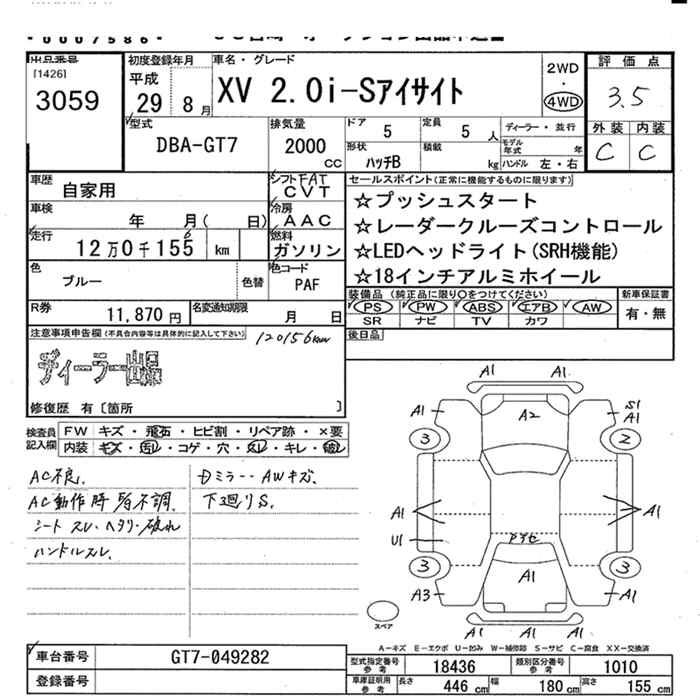 0007586
出品番号
[1426]
3059
初度登録年月
平成
29 8月
車名・グレード
XV 2.0i-Sアイサイト
2WD
・
4WD
評価点
3.5
外装 内装
C C
型式
DBA-GT7
排気量
2000
cc
ドア 5
定員 5 人
ディーラー・並行
形状
ハッチB
積載 kg
モデル年式 年
ハンドル 左・右
車歴
自家用
シフト FAT
CVT
車検
年 月( 日)
冷房
AAC
走行
12万0千155 km
6
燃料
ガソリン
色
ブルー
色替
色コード
PAF
R券
11,870 円
名変通知期限
月 日
セールスポイント(正常に機能するものに限ります)
☆プッシュスタート
☆レーダークルーズコントロール
☆LEDヘッドライト(SRH機能)
☆18インチアルミホイール
装備品 (純正品に限り○をつけてください)
PS PW ABS エアB AW
SR ナビ TV カワ
新車保証書
有・無
後日品
注意事項申告欄(不具合内容等は具体的に記入して下さい)
120156km
ディーラー出品
修復歴 有〔箇所 〕
検査員
記入欄
FW キズ・飛石・ヒビ割・リペア跡・×要
内装 キズ・汚レ・コゲ・穴・スレ・キレ・破レ
AC不良.
AC動作時 異音不調.
シート スレ・ヘタリ・破れ
ハンドルスレ.
Dミラー・AWキズ.
下廻りS.
A1 A1
A1 A2 S1
A1
3 2
A1 A1
U1
3 3
A1
A3 A1 A1
A1 A1
スペア
A-キズ E-エクボ U-凹み W-補修跡 S-サビ C-腐食 XX-交換済
車台番号
GT7-049282
登録番号
型式指定番号
参考
18436
類別区分番号
参考
1010
車庫証明用
参考
長さ 446 cm
幅 180 cm
高さ 155 cm